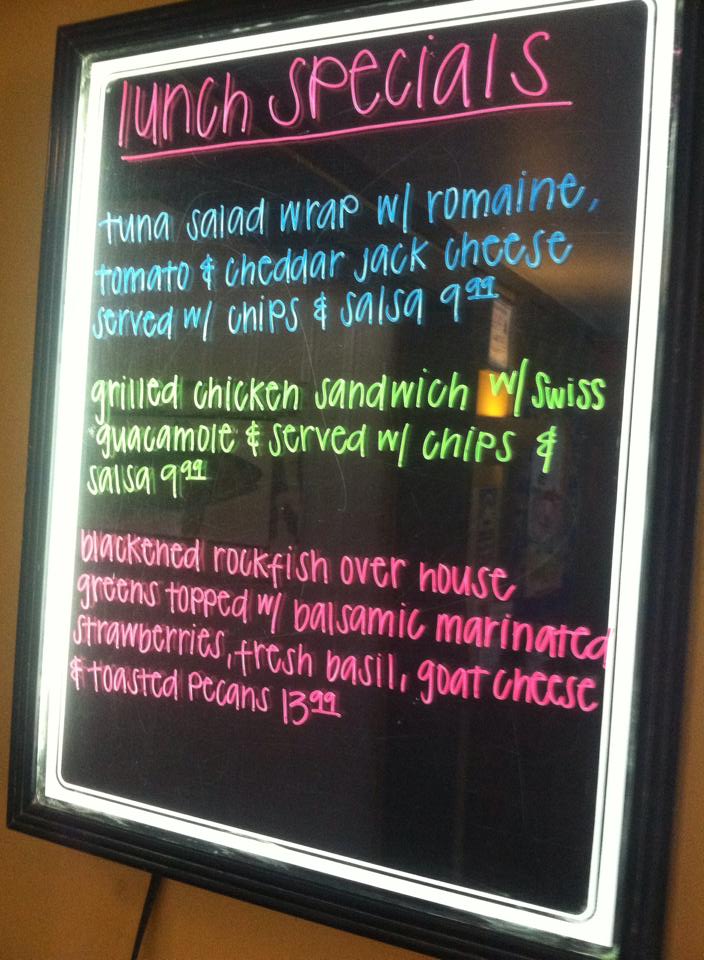 lunch specials
tuna salad wrap w/ romaine,
tomato & cheddar jack cheese
served w/ chips & salsa 9⁹⁹
grilled chicken sandwich w/ swiss
guacamole & served w/ chips &
salsa 9⁹⁹
blackened rockfish over house
greens topped w/ balsamic marinated
strawberries, fresh basil, goat cheese
& toasted pecans 13⁹⁹